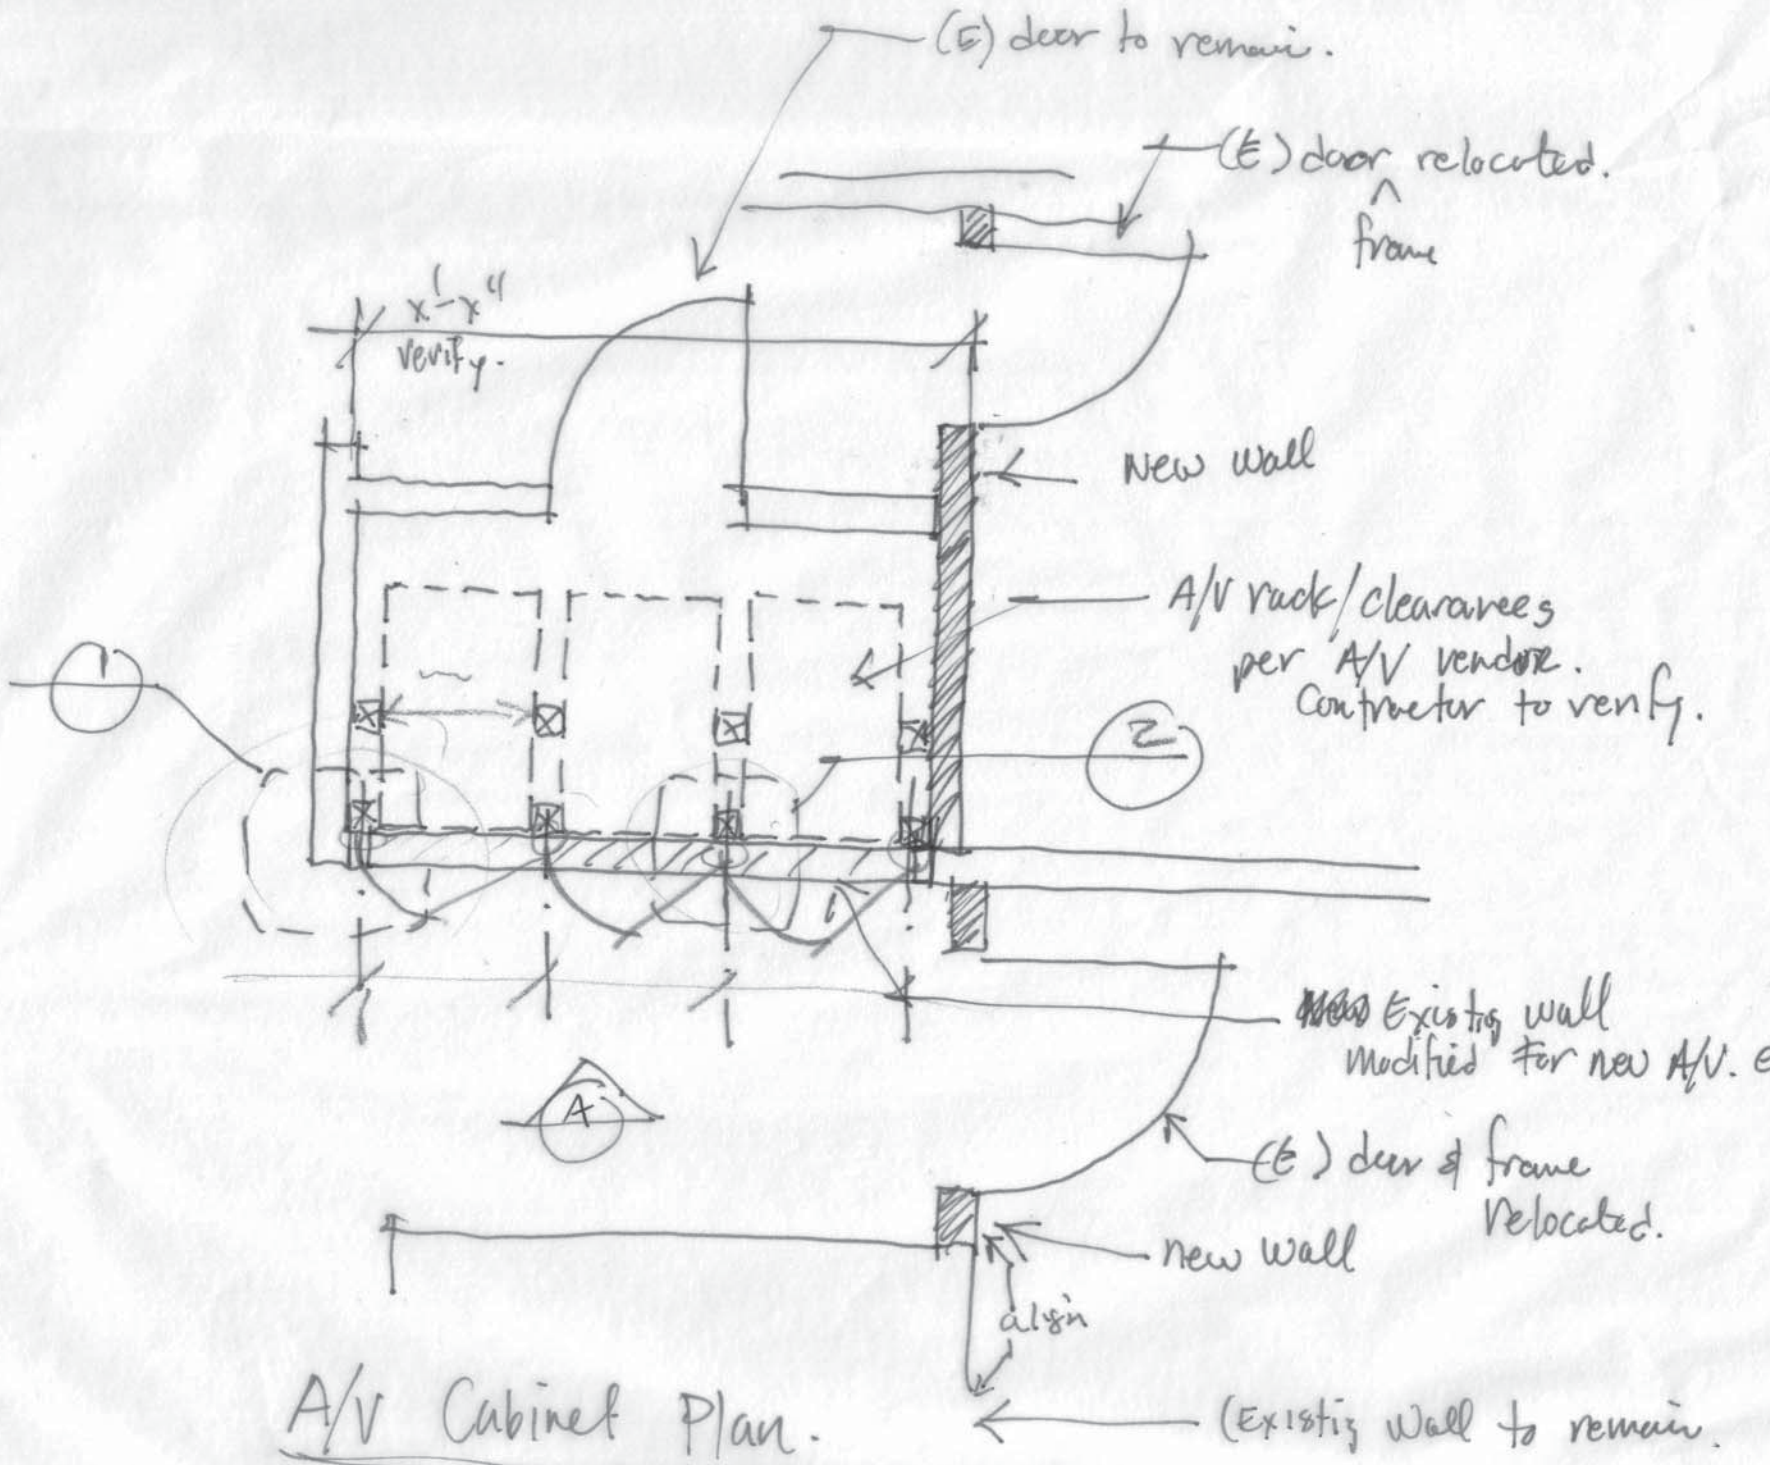 (E) door to remain.
(E) door ^ relocated.
frame
x'-x"
verify.
New Wall
A/V rack/clearances
per A/V vendor.
Contractor to verify.
1
2
Existing wall
modified for new A/V.
A
(E) door & frame
relocated.
new wall
align
A/V Cabinet Plan.
(Existing Wall to remain.